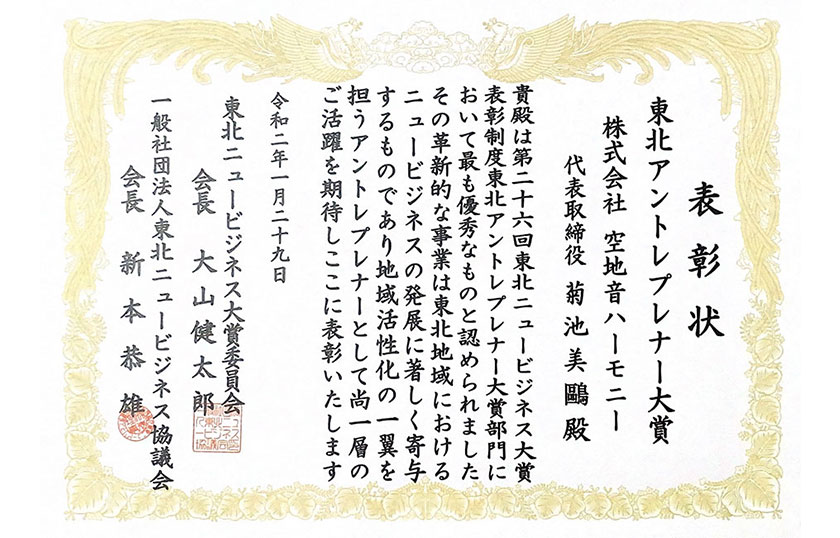 表彰状
東北アントレプレナー大賞
株式会社 空地音ハーモニー
代表取締役 菊池美鷗殿
貴殿は第二十六回東北ニュービジネス大賞
表彰制度東北アントレプレナー大賞部門に
おいて最も優秀なものと認められました
その革新的な事業は東北地域における
ニュービジネスの発展に著しく寄与
するものであり地域活性化の一翼を
担うアントレプレナーとして尚一層の
ご活躍を期待しここに表彰いたします
令和二年一月二十九日
東北ニュービジネス大賞委員会
会長 大山健太郎
一般社団法人東北ニュービジネス協議会
会長 新本恭雄